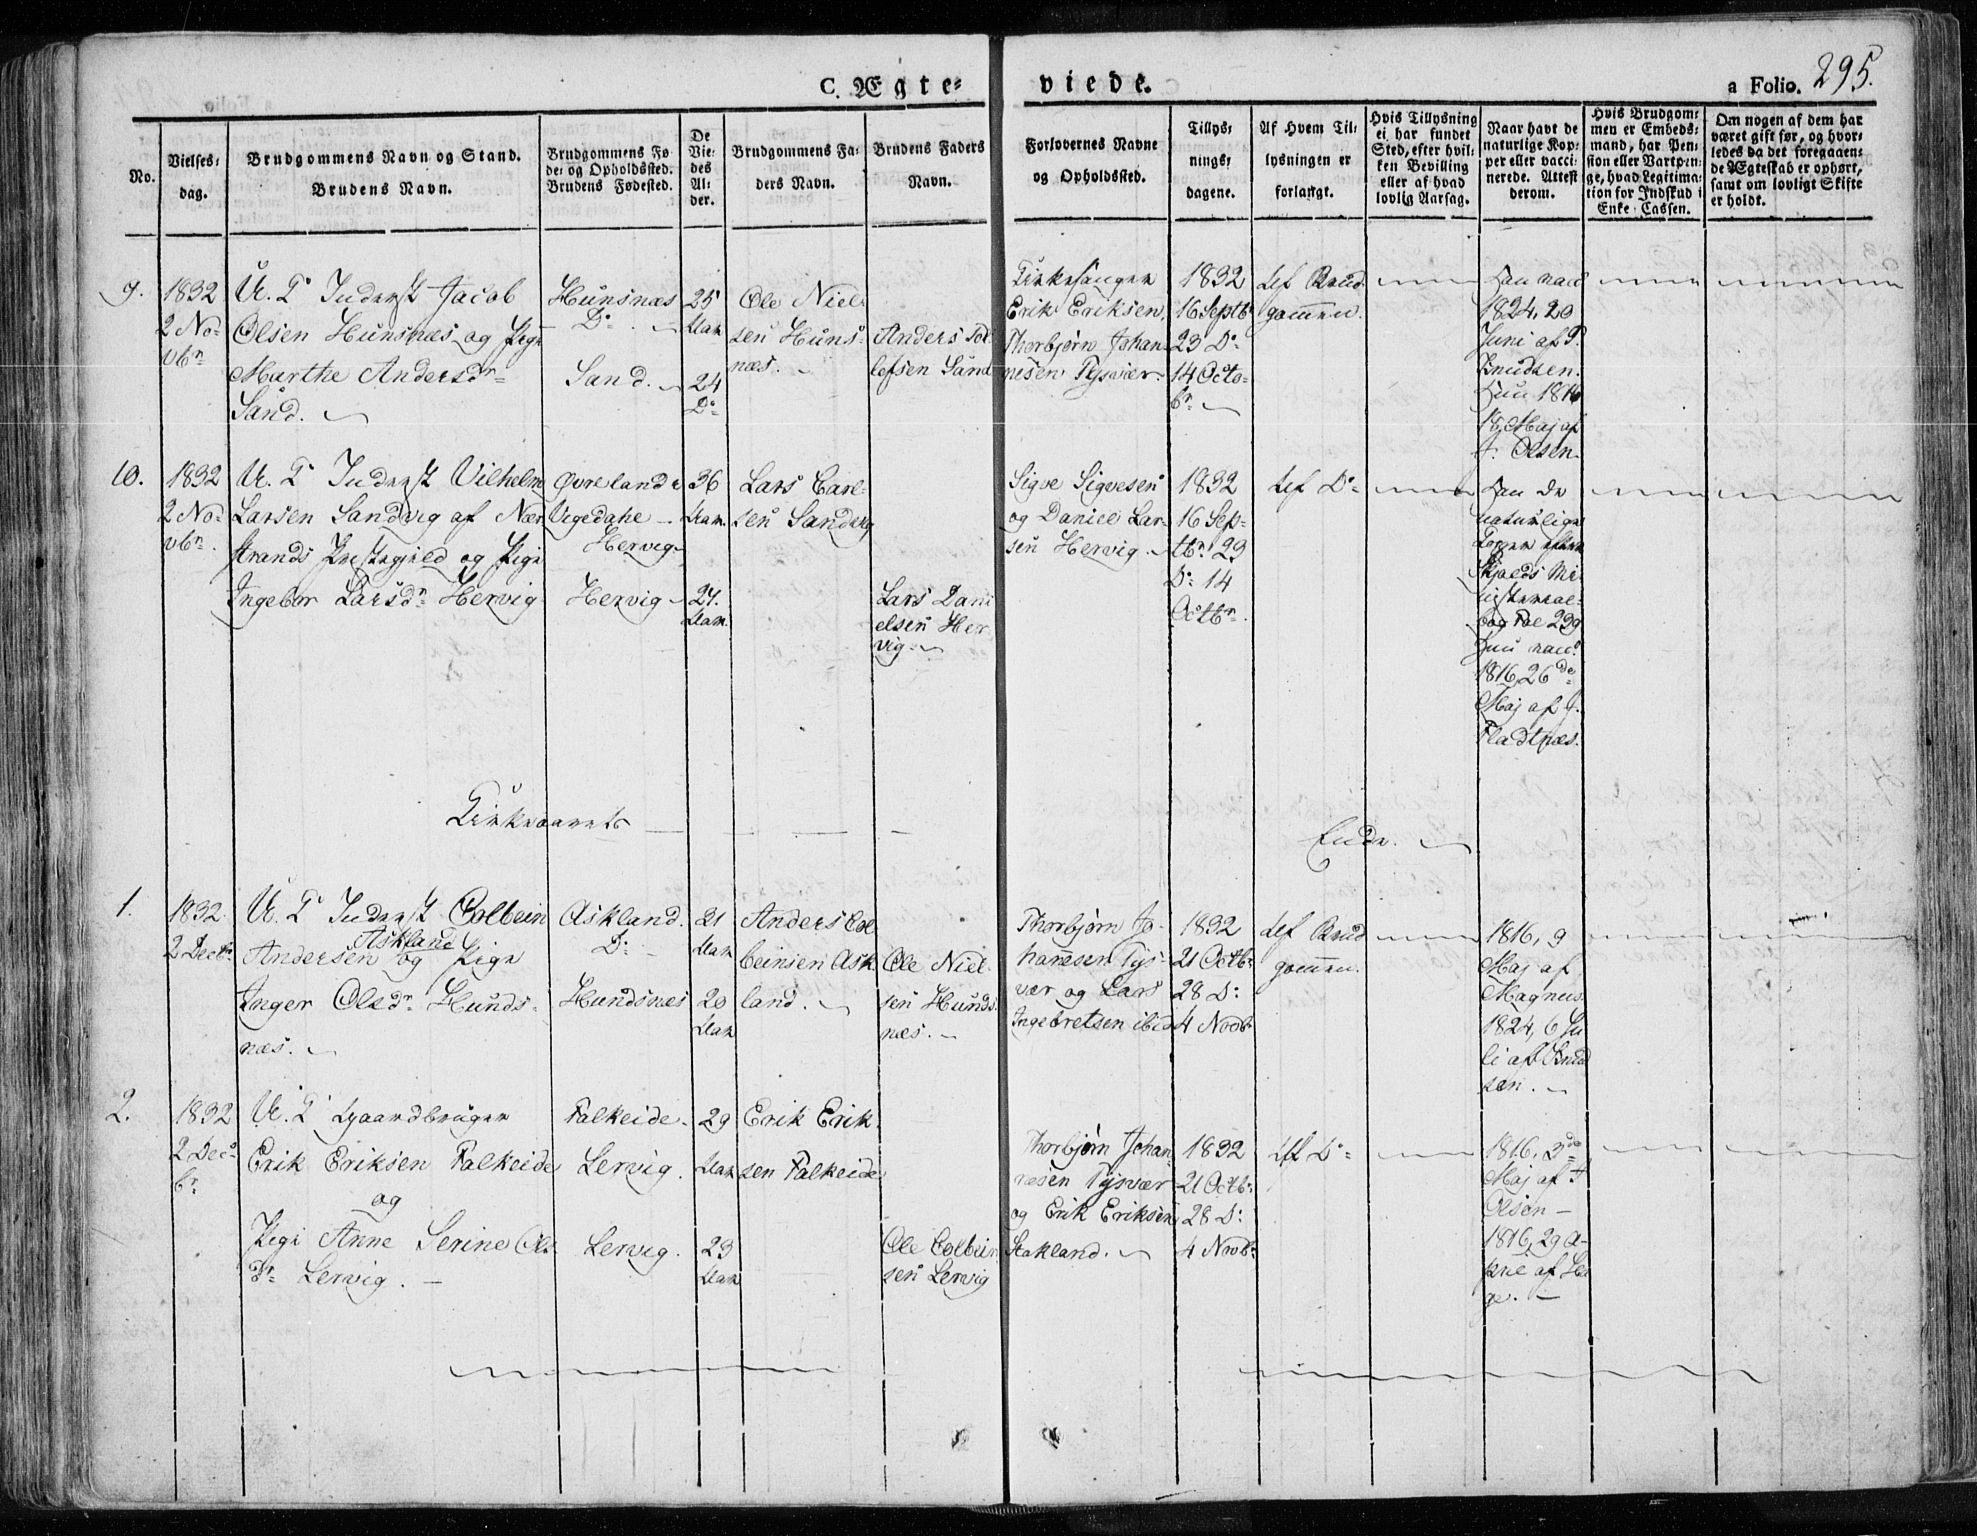 C. Ægte- viede.
a Folio. 295.
No.
Vielses-
dag.
Brudgommens Navn og Stand.
Brudens Navn.
Brudgommens Fø
de- og Opholdssted.
Brudens Fødested.
De
Vie-
des
Al-
der.
Brudgommens Fa-
ders Navn.
Brudens Faders
Navn.
Forlovernes Navne
og Opholdssted.
Tillys-
nings-
dagene.
Af Hvem Til-
lysningen er
forlangt.
Hvis Tillysning
ei har fundet
Sted, efter hvil-
ken Bevilling
eller af hvad
lovlig Aarsag.
Naar havt de
naturlige Kop-
per eller vacci-
nerede. Attest
derom.
Hvis Brudgom-
men er Embeds-
mand, har Pen-
sion eller Vartpen-
ge, hvad Legitima-
tion for Indskud i
Enke-Cassen.
Om nogen af dem har
været gift før, og hvor-
ledes da det foregaaen-
de Ægteskab er ophørt,
samt om lovligt Skifte
er holdt.
9.
1832
2 No-
vbr
U. K. Inderst Jacob
Olsen Hunsnæs og Pige
Marthe Andersdr
Sand.
Hunsnæs
Do
Sand.
25
Aar
24
Do
Ole Niel-
sen Huns-
næs.
Anders Tol
lefsen Sand
Kirkesanger
Erik Eriksen,
Thorbjørn Johan-
nesen Tysvær.
1832
16 Septbr
23 Do
14 Octo-
br
Af Brud
gommen.
Han vac
1824, 20
Juni af P.
Knudsen.
Hun 1816
18 Maj af
Olsen.
10.
1832
2 No-
vbr.
U. K. Inderst Vilhelm
Larsen Sandvig af Nær
strands Præstegjeld og Pige
Ingebor Larsdr Hervig
Øvrelande
Vigedahl
Hervig
Hervig
36
Aar.
27.
Aar.
Lars Carl-
sen Sandvig
Lars Dani
elsen Her
vig.
Sigve Sigvesen
og Daniel Lar-
sen Hervig.
1832
16 Sep-
tbr 23
Do 14
Octbr.
Af Do
Han de
naturlige
Kopper efter
Skjolds Mi-
nisterial-
bog Fol 239
Hun vac.
1816, 26de
Maj af
Fladtnæs.
Kirkeaarets
Ende.
1.
1832.
2 Decbr
U. K. Inderst Colbein
Askland
Andersen og Pige
Inger Olsdr Hunds-
næs.
Askland.
Do
Hundsnæs
21
Aar
20
Aar
Anders Col
beinsen Ask
land.
Ole Niel-
sen Hunds
næs.
Thorbjørn Jo-
hanesen Tys-
vær og Lars
Ingebretsen ibid
1832
21 Octbr
28 Do
4 Novbr
Af Brud
gommen.
1816, 9
Maj af
Magnus.
1824, 6 Ju
li af Knud
sen.
2.
1832
2 Dec-
br
U. K. Gaardbruger
Erik Eriksen Falkeide
og
Pige Anne Serine Ols
dr Lervig.
Falkeide.
Lervig.
Lervig.
29
Aar
23
Aar
Erik Erik
sen Falkeide
Ole Colbein
sen Lervig
Thorbjørn Johan-
nesen Tysvær
og Erik Eriksen
Stakland.
1832
21 Octbr
28 Do
4 Novbr
Af Do
1816, 3de
Maj af
Olsen
1816, 29 A-
pril af He
ge.